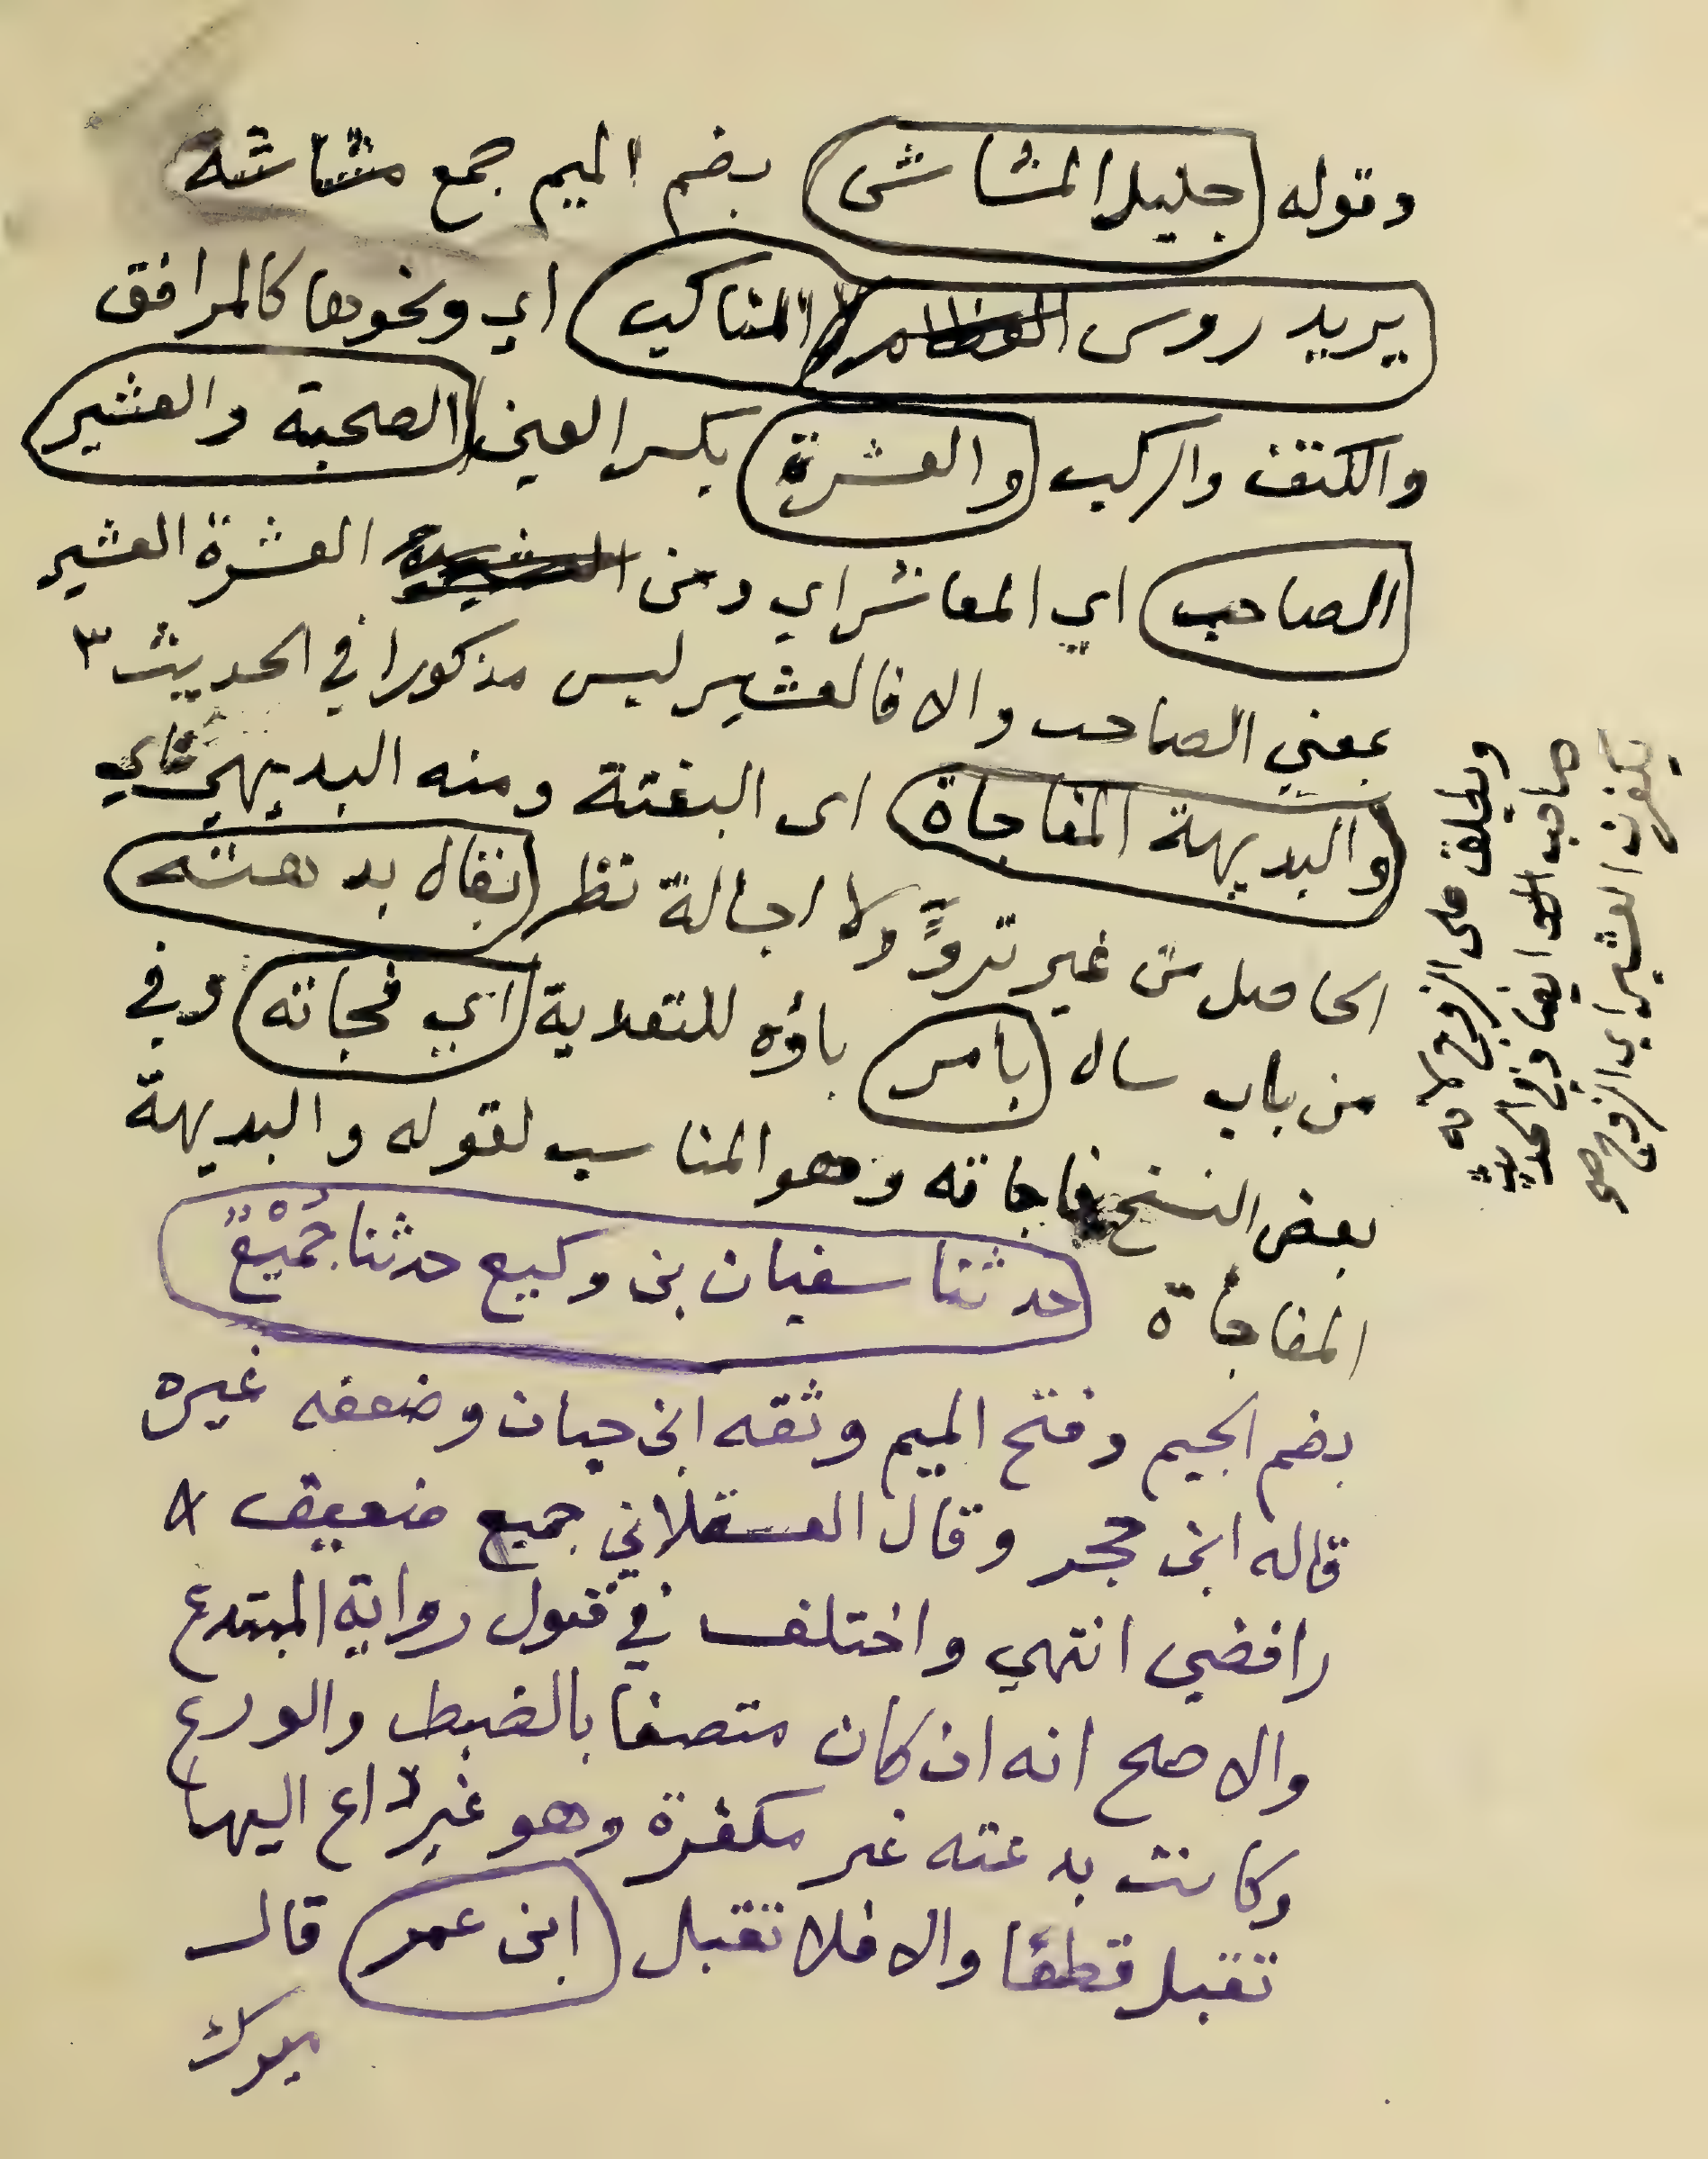 وقوله جليل المشاش بضم الميم جمع مشاشه
يريد روس المناكب اي ونحوها كالمرافق
والكتف والركب والعشرة بكسر العين الصحبة والعشير
الصاحب اي المعاشر اي ومن العشرة العشير
بمعني الصاحب والا فالعشير ليس مذكورا في الحديث ٣
والبديهة المفاجاة اى البغتة ومنه البديهي
الحاصل من غير تروٍّ ولا اجالة نظر يقال بدهته
من باب سال بامر باؤه للتعدية اي فجاته وفي
بعض النسخ فاجاته وهو المناسب لقوله والبديهة
المفاجأة حدثنا سفيان بن وكيع حدثنا جُمَيْعٌ
بضم الجيم وفتح الميم وثقه ابن حبان وضعفه غيره
قاله ابن حجر وقال العسقلاني جميع ضعيف
رافضي انتهي واختلف في قبول رواية المبتدع
والاصح انه ان كان متصفا بالضبط والورع
وكانت بدعته غير مكفرة وهو غير داع اليها
تقبل قطعا والا فلا تقبل ابن عمر قال
ميرك
ويطلق على الزوج لانه
صاحب ايضا وفي الحديث
يكفرن العشير اي الزوج صح